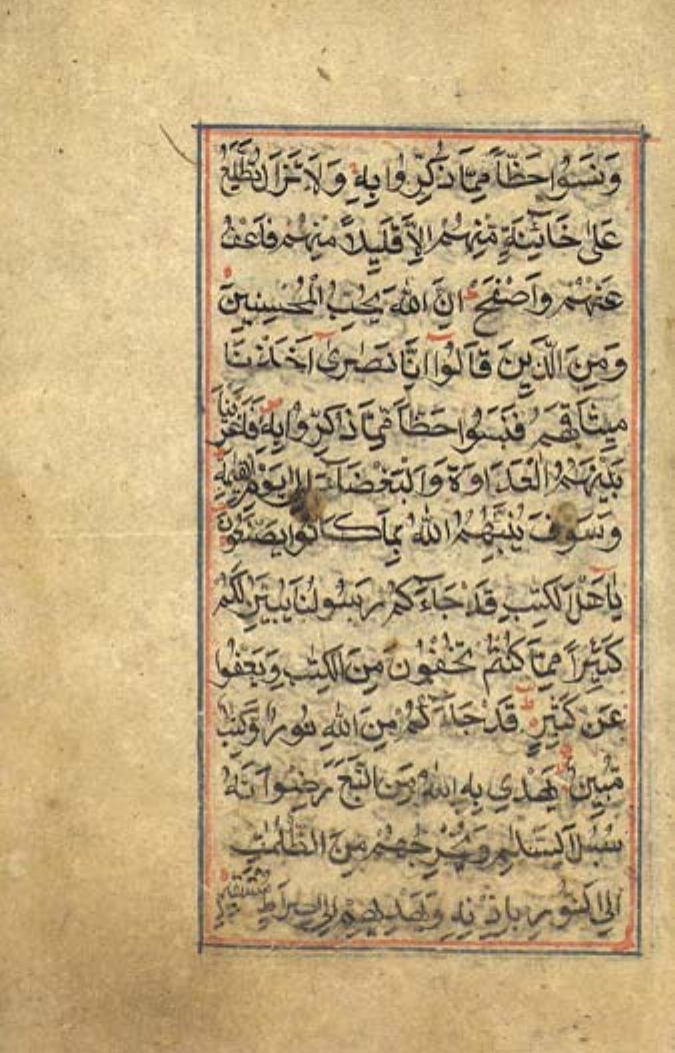 وَنَسُوا حَظّاً مِمَّا ذُكِّرُوا بِهِ وَلَا تَزَالُ تَطَّلِعُ
عَلىٰ خَائِنَةٍ مِنْهُمْ اِلَّا قَلِيلاً مِنْهُمْ فَاعْفُ
عَنْهُمْ وَاصْفَحْ اِنَّ اللهَ يُحِبُّ الْمُحْسِنِينَ
وَمِنَ الَّذِينَ قَالُوا اِنَّا نَصٰرىٰ اَخَذْنَا
مِيثَاقَهُمْ فَنَسُوا حَظّاً مِمَّا ذُكِّرُوا بِهِ فَاَغْرَيْنَا
بَيْنَهُمُ الْعَدَاوَةَ وَالْبَغْضَاءَ اِلىٰ يَوْمِ الْقِيٰمَةِ
وَسَوْفَ يُنَبِّئُهُمُ اللهُ بِمَا كَانُوا يَصْنَعُونَ
يَا اَهْلَ الْكِتٰبِ قَدْ جَاءَكُمْ رَسُولُنَا يُبَيِّنُ لَكُمْ
كَثِيراً مِمَّا كُنْتُمْ تُخْفُونَ مِنَ الْكِتٰبِ وَيَعْفُوا
عَنْ كَثِيرٍ قَدْ جَاءَكُمْ مِنَ اللهِ نُورٌ وَكِتٰبٌ
مُبِينٌ يَهْدِي بِهِ اللهُ مَنِ اتَّبَعَ رِضْوَانَهُ
سُبُلَ السَّلٰمِ وَيُخْرِجُهُمْ مِنَ الظُّلُمٰتِ
اِلَى النُّورِ بِاِذْنِهِ وَيَهْدِيهِمْ اِلىٰ صِرَاطٍ مُسْتَقِيمٍ